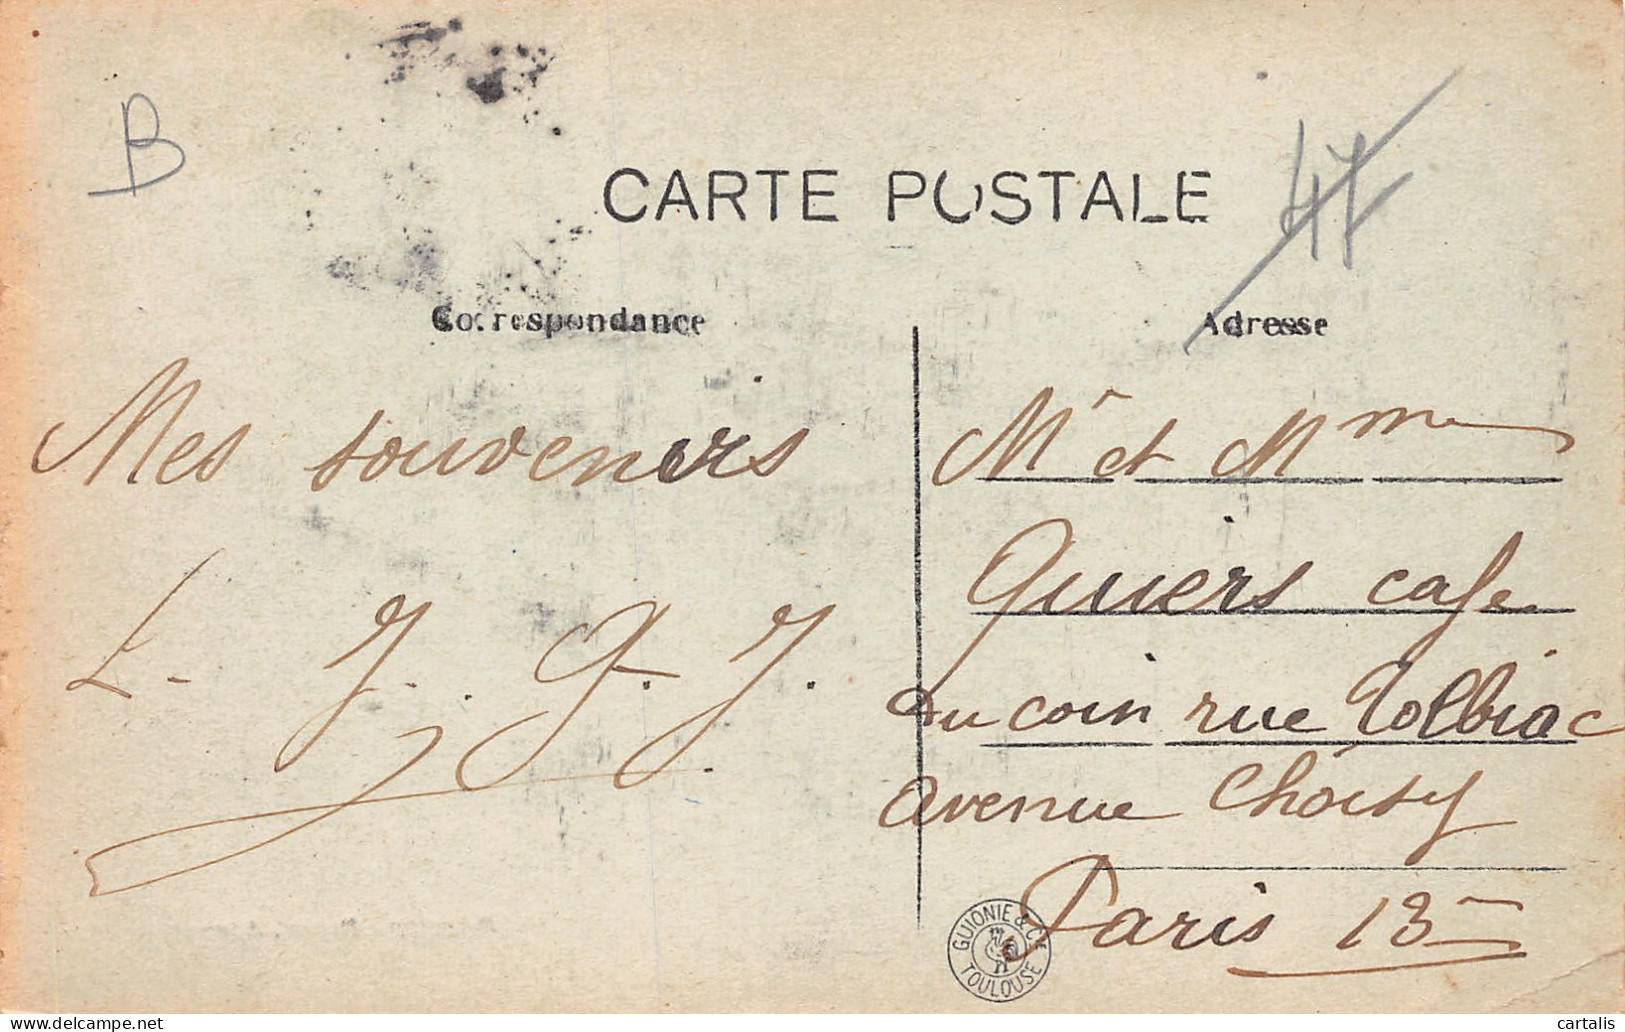 B
CARTE POSTALE
47
Correspondance
Adresse
Mes souvenirs
Mr et Mme
Quiers cafe
du coin rue Tolbiac
avenue Choisy
Paris 13
GUIONIE & Cie
TOULOUSE
delcampe.net
cartalis